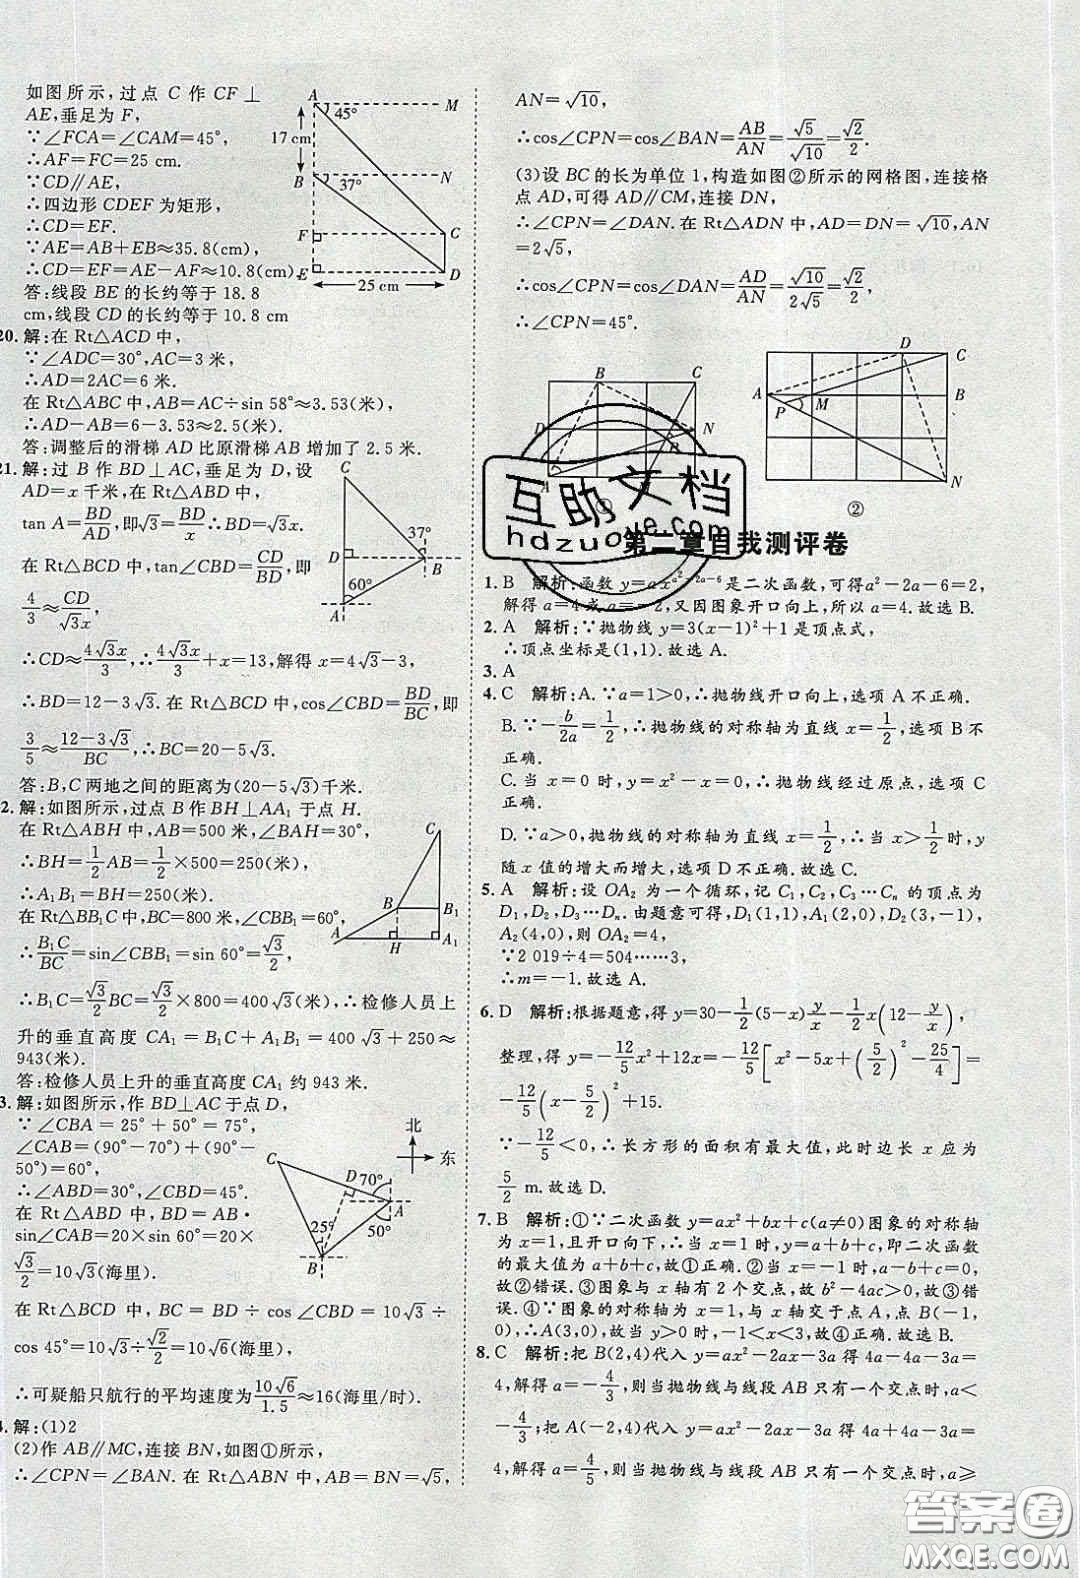 如图所示,过点 C 作 CF⊥
AE,垂足为 F,
∵∠FCA=∠CAM=45°,
∴AF=FC=25 cm.
∵CD∥AE,
∴四边形 CDEF 为矩形,
∴CD=EF.
∵AE=AB+EB≈35.8(cm),
∴CD=EF=AE-AF≈10.8(cm)
答:线段 BE 的长约等于 18.8
cm,线段 CD 的长约等于 10.8 cm
A M
45°
17 cm
B N
37°
F C
E D
25 cm
20. 解:在 Rt△ACD 中,
∵∠ADC=30°,AC=3 米,
∴AD=2AC=6 米.
在 Rt△ABC 中,AB=AC÷sin 58°≈3.53(米),
∴AD-AB≈6-3.53≈2.5(米).
答:调整后的滑梯 AD 比原滑梯 AB 增加了 2.5 米.
21. 解:过 B 作 BD⊥AC,垂足为 D,设
AD=x 千米,在 Rt△ABD 中,
tan A=BD/AD,即√3=BD/x,∴BD=√3x.
在 Rt△BCD 中,tan∠CBD=CD/BD,即
4/3≈CD/√3x,
∴CD≈4√3x/3,∴4√3x/3+x=13,解得 x=4√3-3,
∴BD=12-3√3.在 Rt△BCD 中,cos∠CBD=BD/BC,即
3/5≈(12-3√3)/BC,∴BC=20-5√3.
答:B,C 两地之间的距离为(20-5√3)千米.
C
37°
D B
60°
A
2. 解:如图所示,过点 B 作 BH⊥AA₁ 于点 H.
在 Rt△ABH 中,AB=500 米,∠BAH=30°,
∴BH=1/2AB=1/2×500=250(米),
∴A₁B₁=BH=250(米).
在 Rt△BB₁C 中,BC=800 米,∠CBB₁=60°,
∴B₁C/BC=sin∠CBB₁=sin 60°=√3/2,
∴B₁C=√3/2BC=√3/2×800=400√3(米),∴检修人员上
升的垂直高度 CA₁=B₁C+A₁B₁=400√3+250≈
943(米).
答:检修人员上升的垂直高度 CA₁ 约为 943 米.
C
B B₁
A H A₁
3. 解:如图所示,作 BD⊥AC 于点 D,
∵∠CBA=25°+50°=75°,
∠CAB=(90°-70°)+(90°-
50°)=60°,
∴∠ABD=30°,∠CBD=45°.
在 Rt△ABD 中,BD=AB·
sin∠CAB=20×sin 60°=20×
√3/2=10√3(海里).
在 Rt△BCD 中,BC=BD÷cos∠CBD=10√3÷
cos 45°=10√3÷√2/2=10√6(海里),
∴可疑船只航行的平均速度为10√6/1.5≈16(海里/时).
北
东
C D 70°
A
25° 50°
B
4. 解:(1)2
(2)作 AB∥MC,连接 BN,如图①所示,
∴∠CPN=∠BAN.在 Rt△ABN 中,AB=BN=√5,
AN=√10,
∴cos∠CPN=cos∠BAN=AB/AN=√5/√10=√2/2.
(3)设 BC 的长为单位 1,构造如图②所示的网格图,连接格
点 AD,可得 AD∥CM,连接 DN,
∴∠CPN=∠DAN.在 Rt△ADN 中,AD=DN=√10,AN
=2√5,
∴cos∠CPN=cos∠DAN=AD/AN=√10/2√5=√2/2,
∴∠CPN=45°.
B C
D N
A
D C
A B
P M
N
②
第二章自我测评卷
1. B 解析:函数 y=ax^(a²-2a-6)是二次函数,可得a²-2a-6=2,
解得 a=4或a=-2,又因图象开口向上,所以 a=4.故选 B.
2. A 解析:∵抛物线 y=3(x-1)²+1是顶点式,
∴顶点坐标是(1,1).故选 A.
3. A
4. C 解析:A.∵a=1>0,∴抛物线开口向上,选项 A 不正确.
B.∵-b/2a=1/2,∴抛物线的对称轴为直线 x=1/2,选项 B 不
正确.
C.当 x=0 时,y=x²-x=0,∴抛物线经过原点,选项 C
正确.
D.∵a>0,抛物线的对称轴为直线 x=1/2,∴当 x>1/2时,y
随 x 值的增大而增大,选项 D 不正确.故选 C.
5. A 解析:设 OA₂ 为一个循环,记 C₁,C₂,C₃…Cₙ 的顶点为
D₁,D₂,D₃…Dₙ.由题意可得,D₁(1,1),A₁(2,0),D₂(3,-1),
A₂(4,0),则 OA₂=4,
∵2 019÷4=504……3,
∴m=-1.故选 A.
6. D 解析:根据题意,得 y=30-1/2(5-x)y/x-1/2x(12-y/x),
整理,得 y=-12/5x²+12x=-12/5[x²-5x+(5/2)²-25/4]=
-12/5(x-5/2)²+15.
∵-12/5<0,∴长方形的面积有最大值,此时边长 x 应为
5/2 m.故选 D.
7. B 解析:①∵二次函数 y=ax²+bx+c(a≠0)图象的对称轴
为 x=1,且开口向下,∴当 x=1 时,y=a+b+c,即二次函数
的最大值为 a+b+c,故①正确.②当 x=-1 时,a-b+c=0,
故②错误.③图象与 x 轴有 2 个交点,故 b²-4ac>0,故③错
误.④∵图象的对称轴为 x=1,与 x 轴交于点 A,点 B(-1,
0),∴A(3,0),故当 y>0时,-1<x<3,故④正确.故选 B.
8. C 解析:把 B(2,4)代入 y=ax²-2ax-3a 得 4a-4a-3a=
4,解得 a=-4/3,则当抛物线与线段 AB 只有一个交点时,a≤
-4/3;把 A(-2,4)代入 y=ax²-2ax-3a 得 4a+4a-3a=
4,解得 a=4/5,则当抛物线与线段 AB 只有一个交点时,a≥
互助文档
hdzuoye.com
答案圈
MXQE.COM